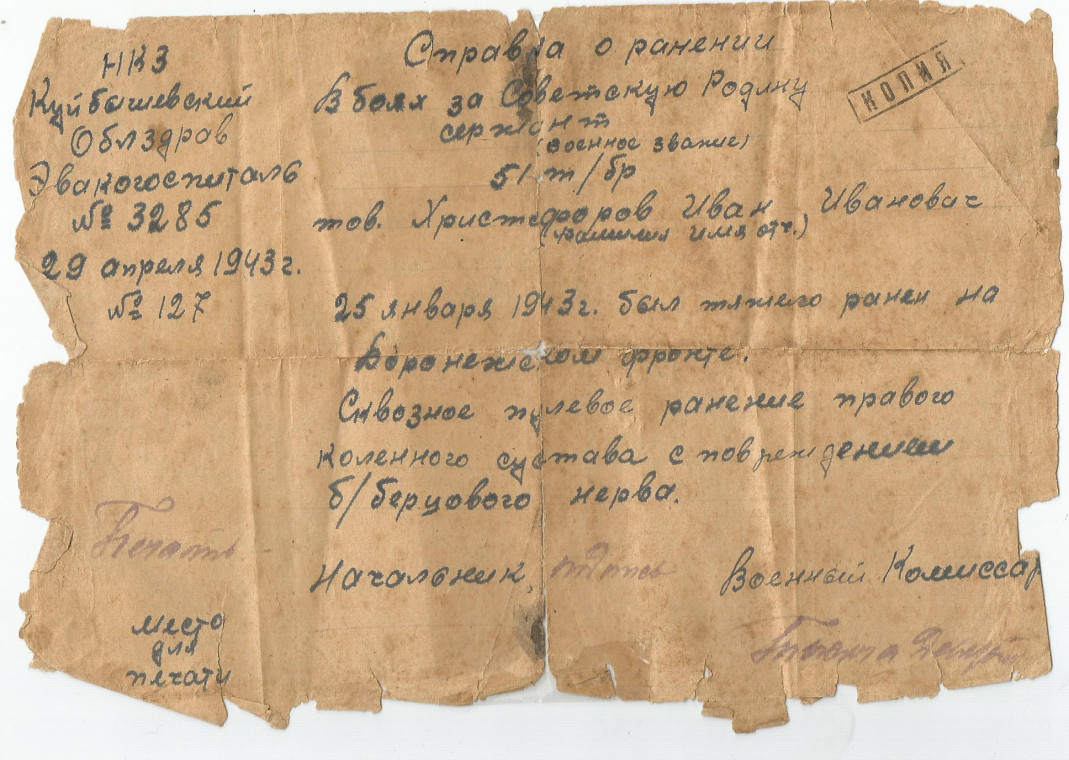 НКЗ
Куйбышевский
Облздрав
Эвакогоспиталь
№ 3285
29 апреля 1943г.
№ 127
Справка о ранении
КОПИЯ
В боях за Советскую Родину
сержант
(военное звание)
51 т/бр
тов. Христофоров Иван Иванович
(фамилия имя отч.)
25 января 1943г. был тяжело ранен на
Воронежском фронте.
Сквозное пулевое ранение правого
коленного сустава с повреждением
б/берцового нерва.
Печать
Начальник подпись Военный Комиссар
место
для
печати